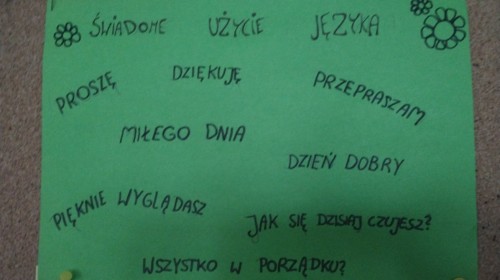 ŚWIADOME UŻYCIE JĘZYKA
PROSZĘ
DZIĘKUJĘ
PRZEPRASZAM
MIŁEGO DNIA
DZIEŃ DOBRY
PIĘKNIE WYGLĄDASZ
JAK SIĘ DZISIAJ CZUJESZ?
WSZYSTKO W PORZĄDKU?